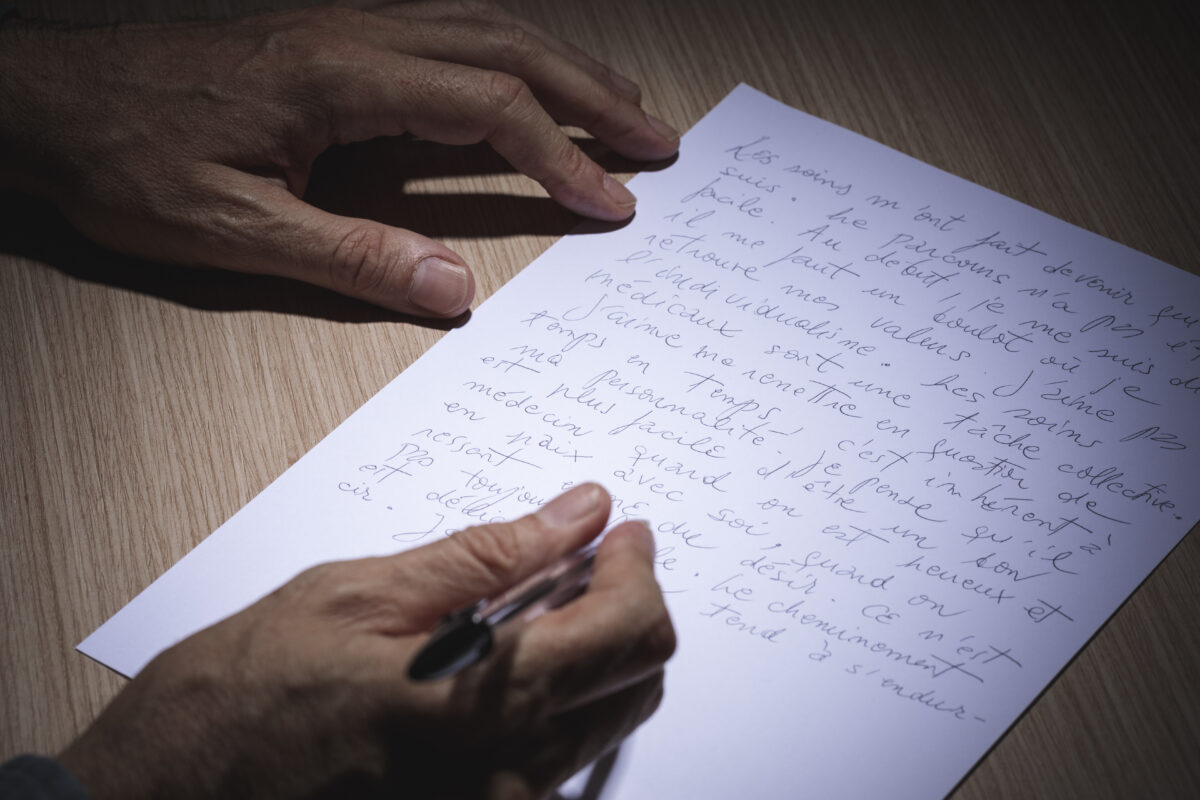 Les soins m'ont fait devenir
suis. Le parcours n'a pas
facile. Au début, je me suis
il me faut un boulot où je
retrouve mes valeurs. J'aime pas
l'individualisme. Les soins
médicaux sont une tâche collective.
J'aime me remettre en question de
temps en temps, c'est inhérent à
ma personnalité. Je pense qu'il
est plus facile d'être un bon
médecin quand on est heureux et
en paix avec soi, quand on
ressent du désir. Ce n'est
pas Le cheminement
est tend à s'endur-
cir.